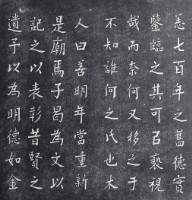 忝七百年之舊德實
鑒臨之其可忍褻視
哉而奈何又移之于
不知誰何之氏也木
人曰善明年當重新
是廟馬子曷為文以
記之以表彰昔賢之
遺于以為明德如金